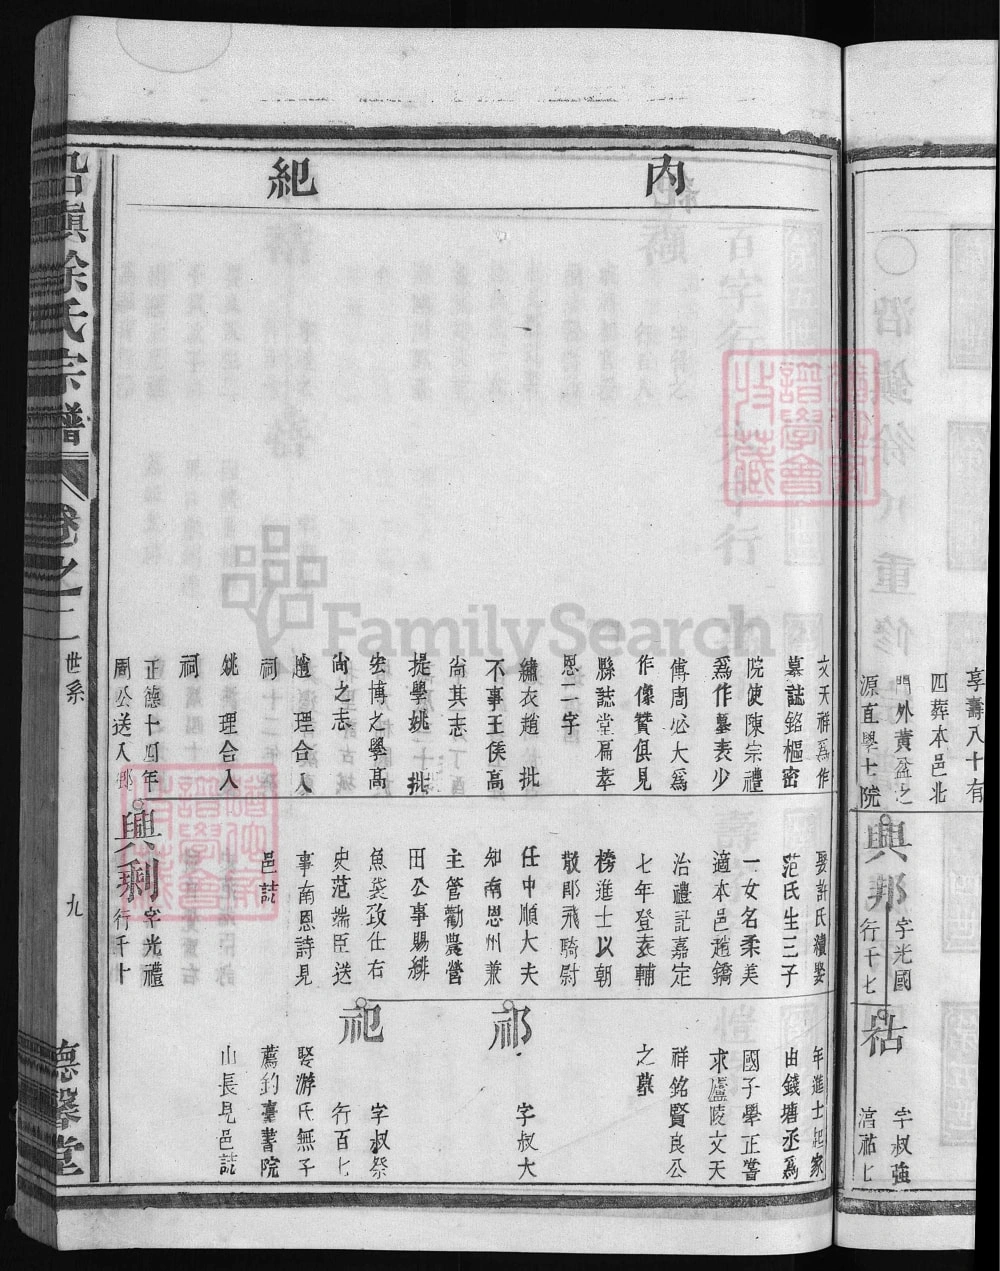 享壽八十有
四葬本邑北
門外黃盆之
源直學士院
興邦
字光國
行千七
祜
字叔強
內紀
文天祥爲作
墓誌銘樞密
院使陳宗禮
爲作墓表少
傅周必大爲
作像贊俱見
縣誌堂扁萃
恩二字
繡衣趙 批
不事王侯高
尚其志
提學姚 批
宏博之學高
尚之志
趙 理合入
祠
姚 理合入
祠
正德十四年
周公送入鄉
娶許氏續娶
范氏生三子
一女名柔美
適本邑趙鐈
治禮記嘉定
七年登袁輔
榜進士以朝
散郎飛騎尉
任中順大夫
知南恩州兼
主管勸農營
田公事賜緋
魚袋致仕右
史范端臣送
事南恩詩見
邑誌
興利
字光禮
行千十
年進士起家
由錢塘丞爲
國子學正嘗
求廬陵文天
祥銘賢良公
之墓
祁
字叔大
祀
字叔祭
行百七
娶游氏無子
薦釣臺書院
山長見邑誌
徐氏宗譜
卷之二
世系
九
德馨堂
譜學會
收藏
FamilySearch